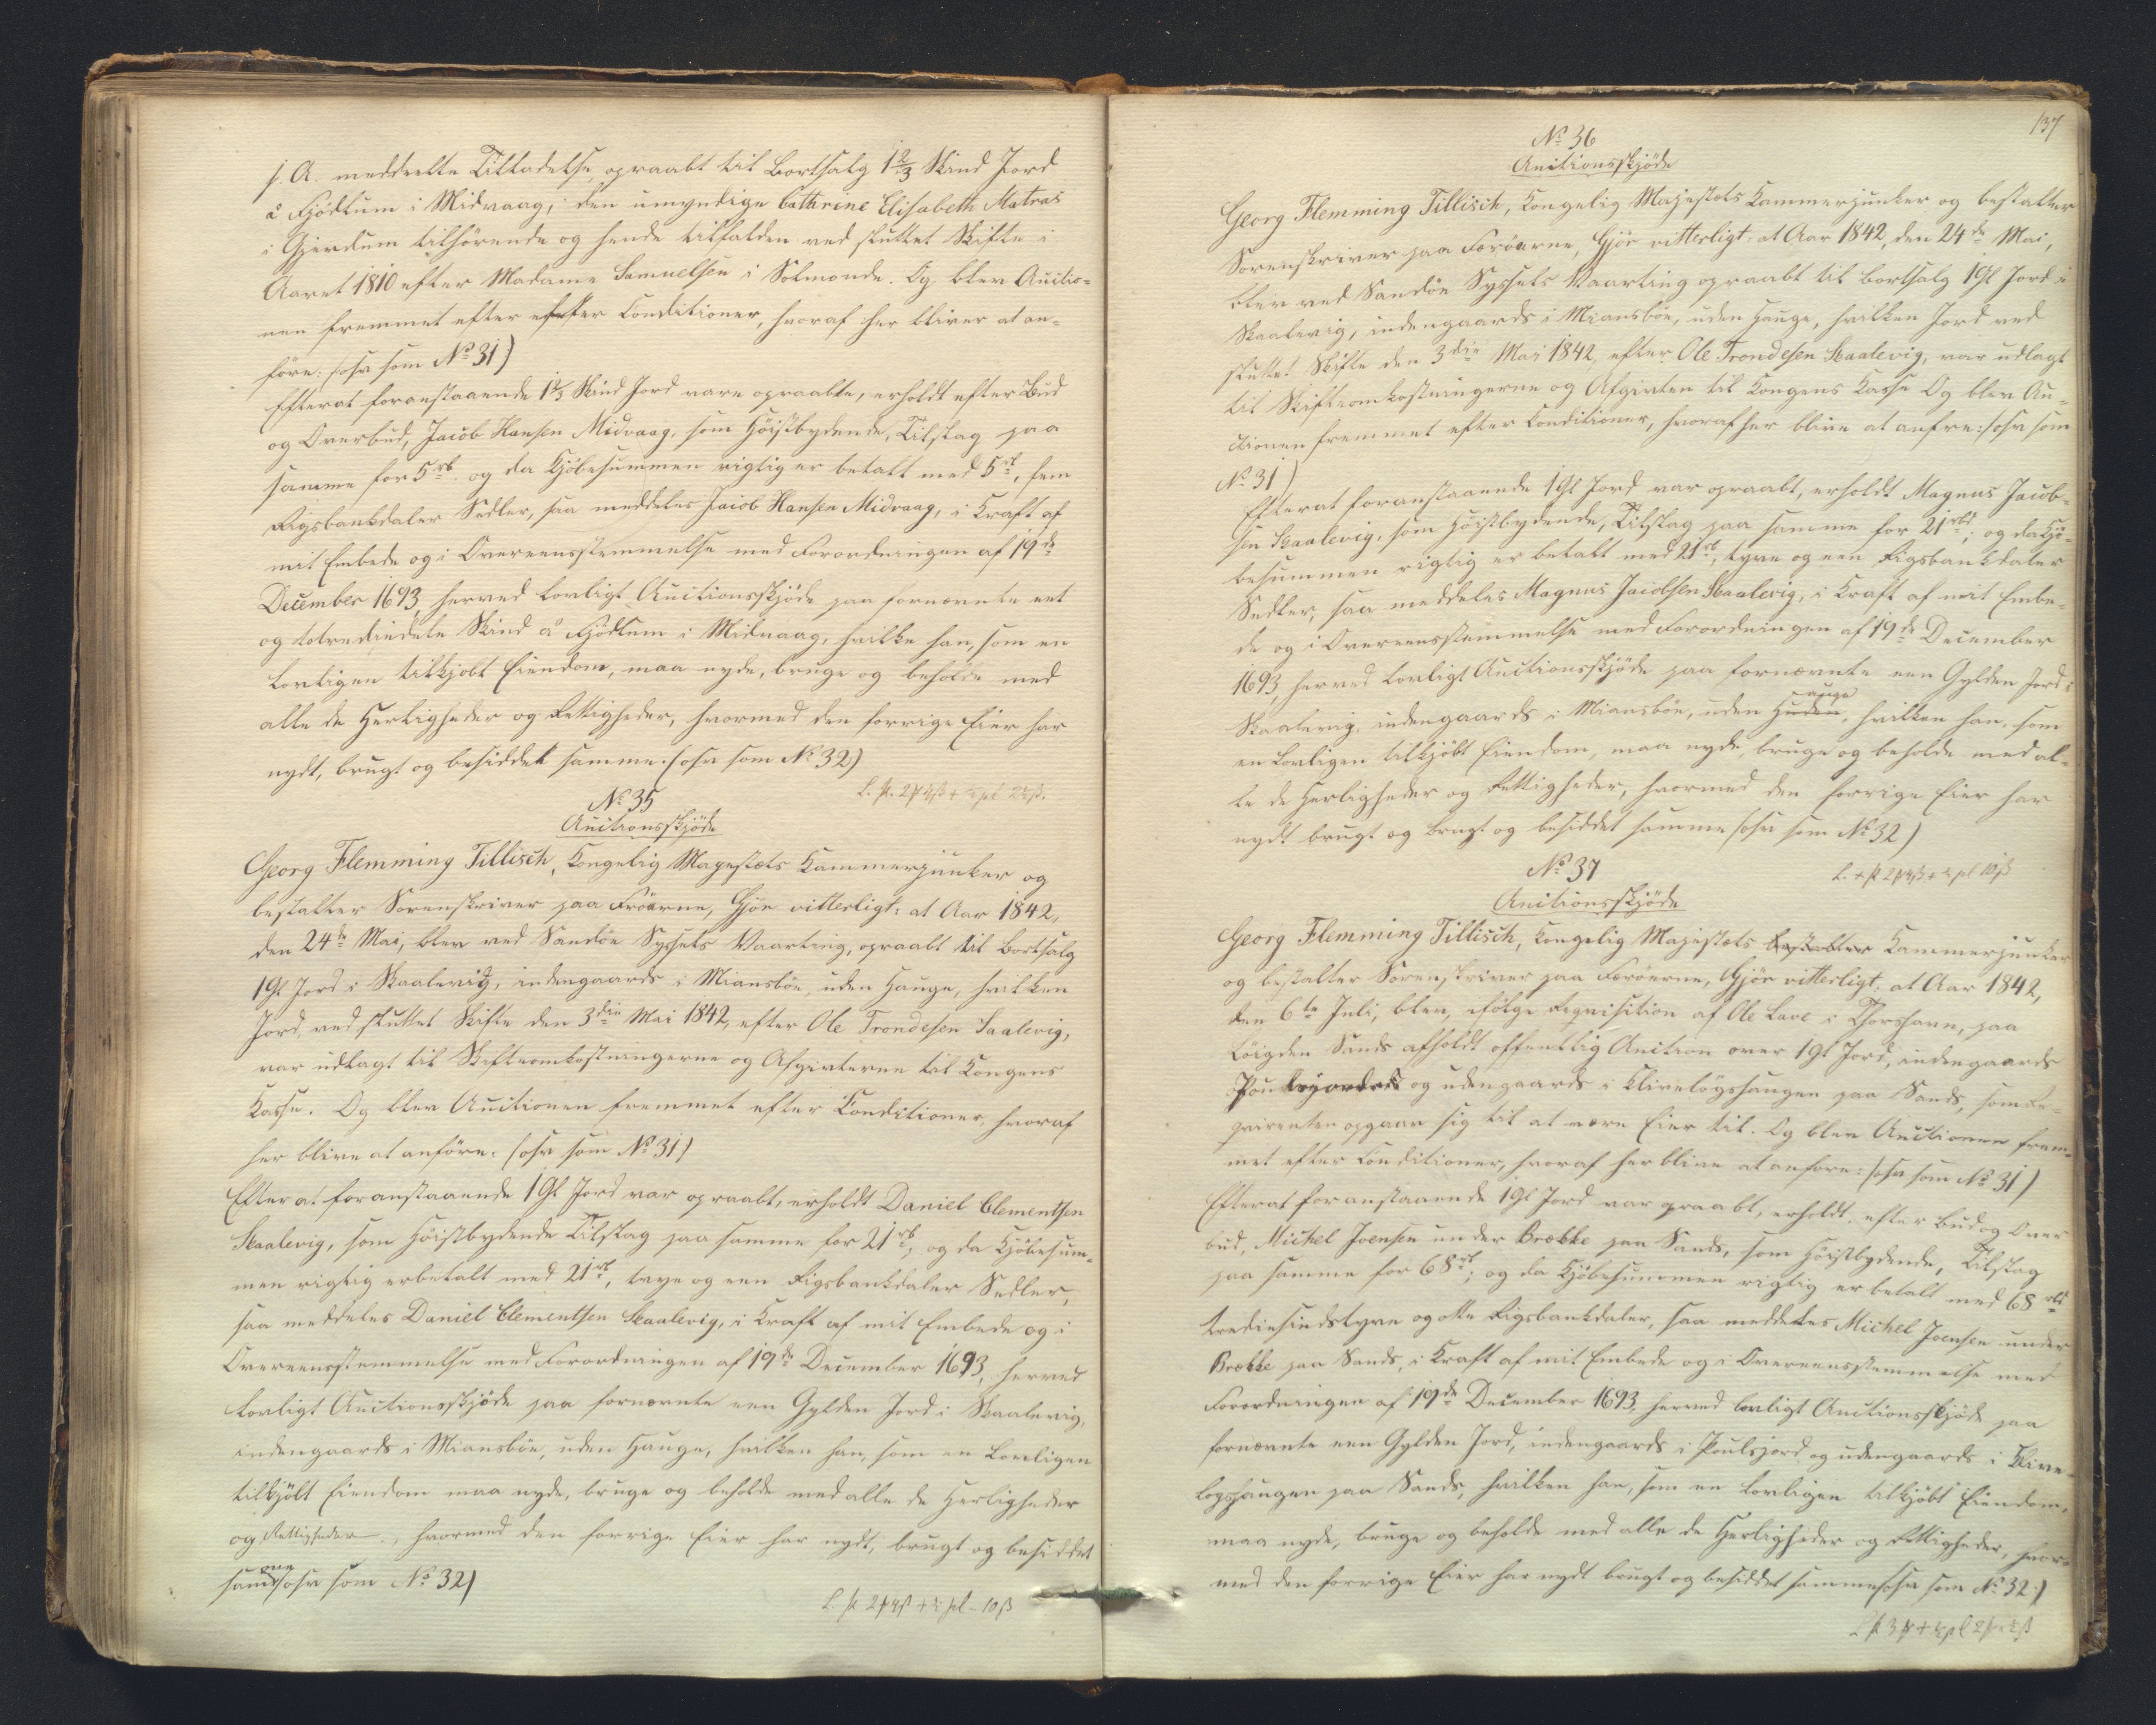 s. A. meddeelte Tilladelse, opraabt til Bortsalg 1 2/3 Skind Jord
à Fjödlum i Midvaag, den umyndige Cathrine Elisabeth Matras
i Gjerdum tilhörende og hende tilfalden ved sluttet Skifte i
Aaret 1810 efter Madame Samuelsen i Solmonde. Og blev Auctio-
nen fremmet efter efter Conditioner, hvoraf her bliver at an-
före: (osv som No 31)
Efterat foranstaaende 1 2/3 Skind Jord vare opraabte, erholdt efter Bud
og Overbud, Jacob Hansen Midvaag, som Höistbydende, Tilslag paa
samme for 5 rb. og da Kjöbesummen rigtig er betalt med 5 rb, fem
Rigsbankdaler Sedler, saa meddeles Jacob Hansen Midvaag, i Kraft af
mit Embede og i Overeensstemmelse med Forordningen af 19de
December 1693, herved lovligt Auctionsskjöde paa fornævnte eet
og totrediedele Skind à Fjödlum i Midvaag, hvilke han, som en
lovligen tilkjobt Eiendom, maa nyde, bruge og beholde med
alle de Herligheder og Rettigheder, hvormed den forrige Eier har
nydt, brugt og besiddet samme. (osv som No 32)
No 35
Auctionsskjöde
Georg Flemming Tillisch, Kongelig Majestæts Kammerjunker og
bestalter Sorenskriver paa Fröerne, Gjör vitterligt: at Aar 1842,
den 24de Mai, blev ved Sandöe Syssels Vaarting, opraabt til Bortsalg
1 Gl Jord i Skaalevig, indengaards i Miansböe, uden Hauge, hvilken
Jord, ved sluttet Skifte den 3die Mai 1842, efter Ole Trondesen Saalevig,
var udlagt til Skifteomkostningerne og Afgivterne til Kongens
Kasse. Og blev Auctionen fremmet efter Conditioner, hvoraf
her blive at anföre: (osv som No 31)
Efterat foranstaaende 1 Gl Jord var opraabt, erholdt Daniel Clementsen
Skaalevig, som Höistbydende Tilslag paa samme for 21 rb, og da Kjöbesum-
men rigtig er betalt med 21 rb, tyve og een Rigsbankdaler Sedler,
saa meddeles Daniel Clementsen Skaalevig, i Kraft af mit Embede og i
Overeensstemmelse med Forordningen af 19de December 1693, herved
lovligt Auctionsskjöde paa fornævnte een Gylden Jord i Skaalevig,
indengaards i Miansböe, uden Hauge, hvilken han, som en lovligen
tilkjöbt Eiendom maa nyde, bruge og beholde med alle de Herligheder
og Rettigheder, hvormed den forrige Eier har nydt, brugt og besiddet
samme (osv som No 32)
137
No 36
Auctionsskjöde
Georg Flemming Tillisch, Kongelig Majestæts Kammerjunker og bestalter
Sorenskriver paa Færöerne, Gjör vitterligt: at Aar 1842, den 24de Mai,
blev ved Sandöe Syssels Vaarting opraabt til Bortsalg 1 Gl Jord i
Skaalevig, indengaards i Miansböe, uden Hauge, hvilken Jord ved
sluttet Skifte den 3die Mai 1842, efter Ole Trondesen Skaalevig, var udlagt
til Skifteomkostningerne og Afgivten til Kongens Kasse Og blev Au-
ctionen fremmet efter Conditioner, hvoraf her blive at anfre: (osv som
No 31)
Efterat foranstaaende 1 Gl Jord var opraabt, erholdt Magnus Jacob-
sen Skaalevig, som Höistbydende, Tilslag paa samme for 21 rbd; og da Kjö-
besummen rigtig er betalt med 21 rb, tyve og een Rigsbankdaler
Sedler, saa meddeles Magnus Jacobsen Skaalevig, i Kraft af mit Embe-
de og i Overeensstemmelse med Forordningen af 19de December
1693, herved lovligt Auctionsskjöde paa fornævnte een Gylden Jord i
Skaalevig, indengaards i Miansböe, uden Hauge, hvilken han, som
en lovligen tilkjöbt Eiendom, maa nyde, bruge og beholde med al-
le de Herligheder og Rettigheder, hvormed den forrige Eier har
nydt brugt og brugt og besiddet samme (osv som No 32)
No 37
Auctionsskjöde
Georg Flemming Tillisch, Kongelig Majestæts bestalter Kammerjunker
og bestalter Sorenskriver paa Færöerne, Gjör vitterligt: at Aar 1842,
den 6te Juli, blev, ifölge Reqvisition af Ole Lave i Thorshavn, paa
Löigden Sands afholdt offentlig Auction over 1 Gl Jord, indengaards
og udengaards i Klivelögshaugen paa Sands, som Re-
qvirenten opgav sig til at være Eier til. Og blev Auctionen frem-
met efter Conditioner, hvoraf her blive at anfore: (osv som No 31)
Efterat foranstaaende 1 Gl Jord var opraabt, erholdt, efter Bud og Over
bud, Michel Joensen under Brekke paa Sands, som Höistbydende, Tilslag
paa samme for 68 rb; og da Kjöbesummen rigtig er betalt med 68 rbd
trediesindstyve og otte Rigsbankdaler, saa meddeles Michel Joensen under
Brekke paa Sands, i Kraft af mit Embede og i Overeensstemmelse med
Forordningen af 19de December 1693, herved lovligt Auctionsskjöde paa
fornævnte een Gylden Jord, indengaards i Poulsjord og udengaards i Klive-
logshaugen paa Sands, hvilken han, som en lovligen tilkjöbt Eiendom,
maa nyde, bruge og beholde med alle de Herligheder og Rettigheder, hvor-
med den forrige Eier har nydt brugt og besiddet samme (osv som No 32.)